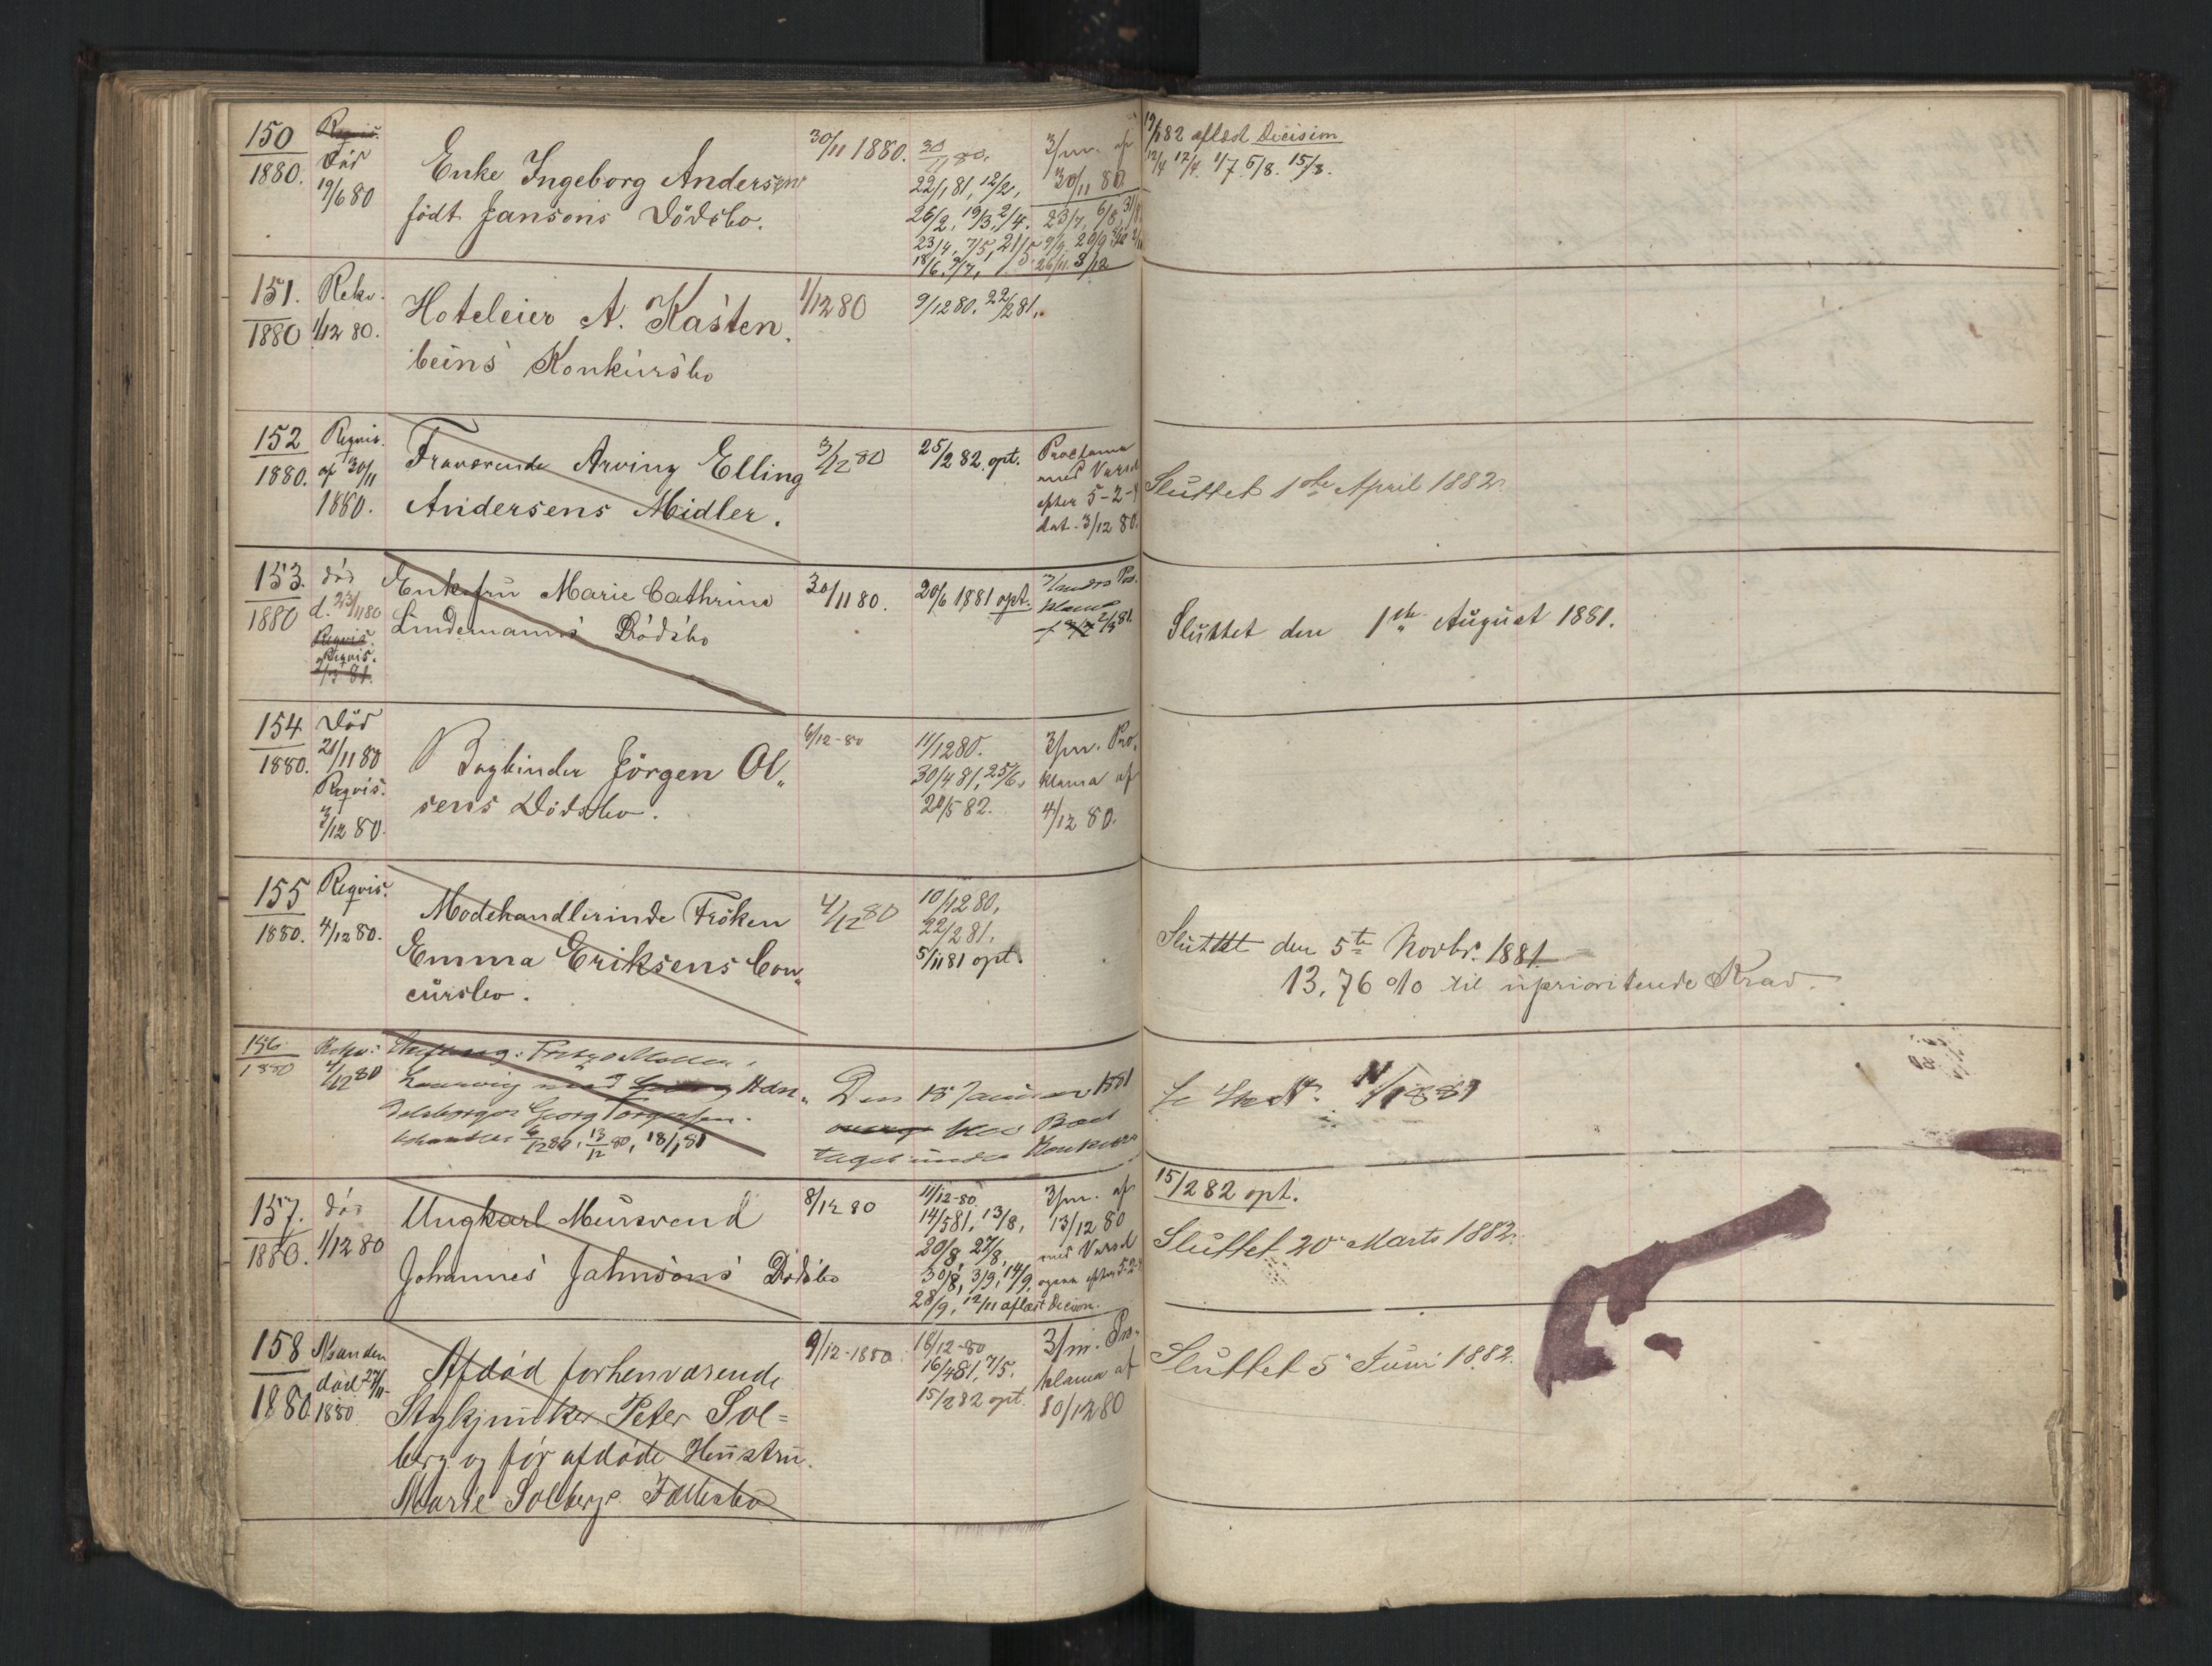 150
1880.
Reqvis.
Död
19/6 80
Enke Ingeborg Andersens
født Jansons Dödsbo.
30/11 1880.
30/11 80.
22/1 81, 12/2,
26/2, 19/3, 2/4.
23/4, 7/5, 21/5
18/6, 9/7,
3/m. af
30/11 80
23/7, 6/8, 31/8
26/11. 3/12
aflæst Decision
12/4 17/4. 1/7. 5/8. 15/8.
151.
1880
Rekv.
1/12 80.
Hoteleier A. Kasten
beins Konkursbo
1/12 80
9/12 80. 22/2 81.
152
1880.
Reqvis.
af 30/11
1880.
Fraværende Arving Elling
Andersens Midler.
3/12 80
25/2 82. opt.
Proclama
med Varsel
efter 5-2-4
dat. 3/12 80.
Sluttet 1ste April 1882.
153.
1880
död
d. 23/11 80
Reqvis.
Reqvis.
2/3 81.
Enkefru Marie Cathrine
Lindemanns Dödsbo
30/11 80.
20/6 1881 opt.
2/3 81.
Sluttet den 1ste August 1881.
154
1880.
Död
21/11 80
Reqvis.
3/12 80.
Bogbinder Jörgen Ol„
sens Dödsbo.
6/12-80
11/12 80.
30/4 81, 25/6,
20/5 82.
3/m. Pro„
klama af
4/12 80.
155
1880.
Reqvis.
4/12 80.
Modehandlerinde Fröken
Emma Eriksens Con„
cursbo.
4/12 80
10/12 80,
22/2 81.
5/11 81 opt.
Sluttet den 5te Novbr. 1881.
13,76 % til uprioriterede Krav.
156
1880
Rekv:
4/12 80
med Han„
delsborger Georg Torgersen.
6/12 80, 13/12 80, 18/1 81
Den 18 Januar 1881
Boet
taget under Konkurs
157.
1880.
död
1/12 80
Ungkarl Mursvend
Johannes Jahnsons Dödsbo
8/12 80
11/12-80.
14/5 81, 13/8,
20/8, 27/8,
30/8, 3/9, 14/9,
28/9, 12/11 aflæst Decision.
3/m. af
13/12 80
med Varsel
ogsaa efter 5-2-4
15/2 82 opt.
Sluttet 20 Marts 1882.
158
1880.
Manden
död 27/11
1880
Afdöd forhenværende
Stykjunker Peter Sol=
berg og för afdöde Hustru
Marie Solbergs Fællesbo
9/12-1880
18/12-80
16/4 81, 7/5.
15/2 82 opt.
3/m. Pro„
klama af
10/12 80
Sluttet 5 Juni 1882.